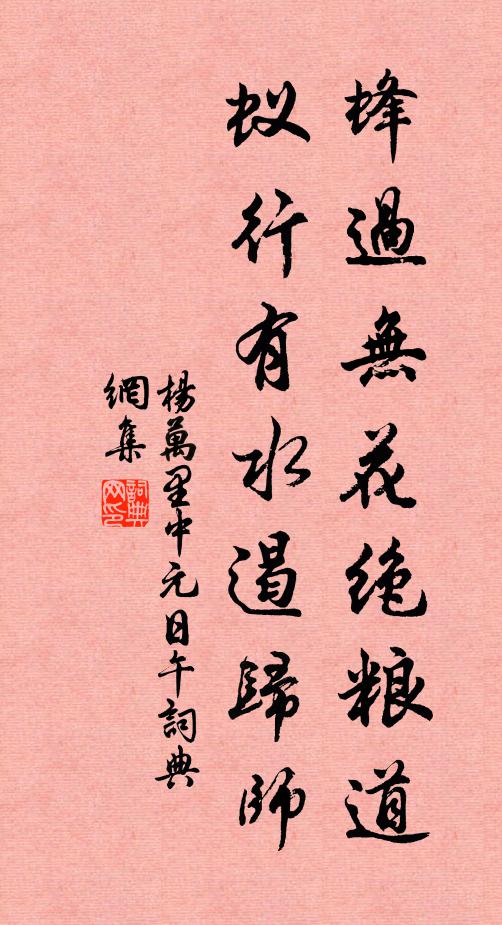 蜂過無花絶粮道
蚁行有水遏歸師
楊萬里中元日午詞典
網集
詞典网印